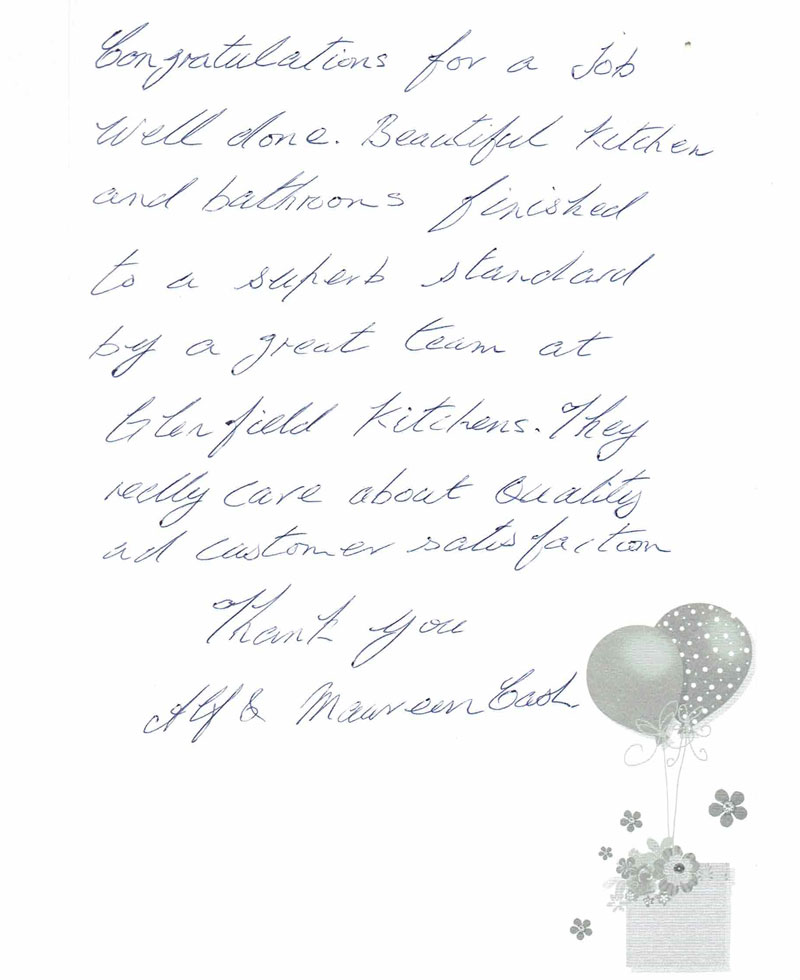 Congratulations for a Job
well done. Beautiful Kitchen
and bathrooms finished
to a superb standard
by a great team at
Glenfield Kitchens. They
really care about Quality
ad customer satisfaction
Thank you
Alf & Maureen Cash.